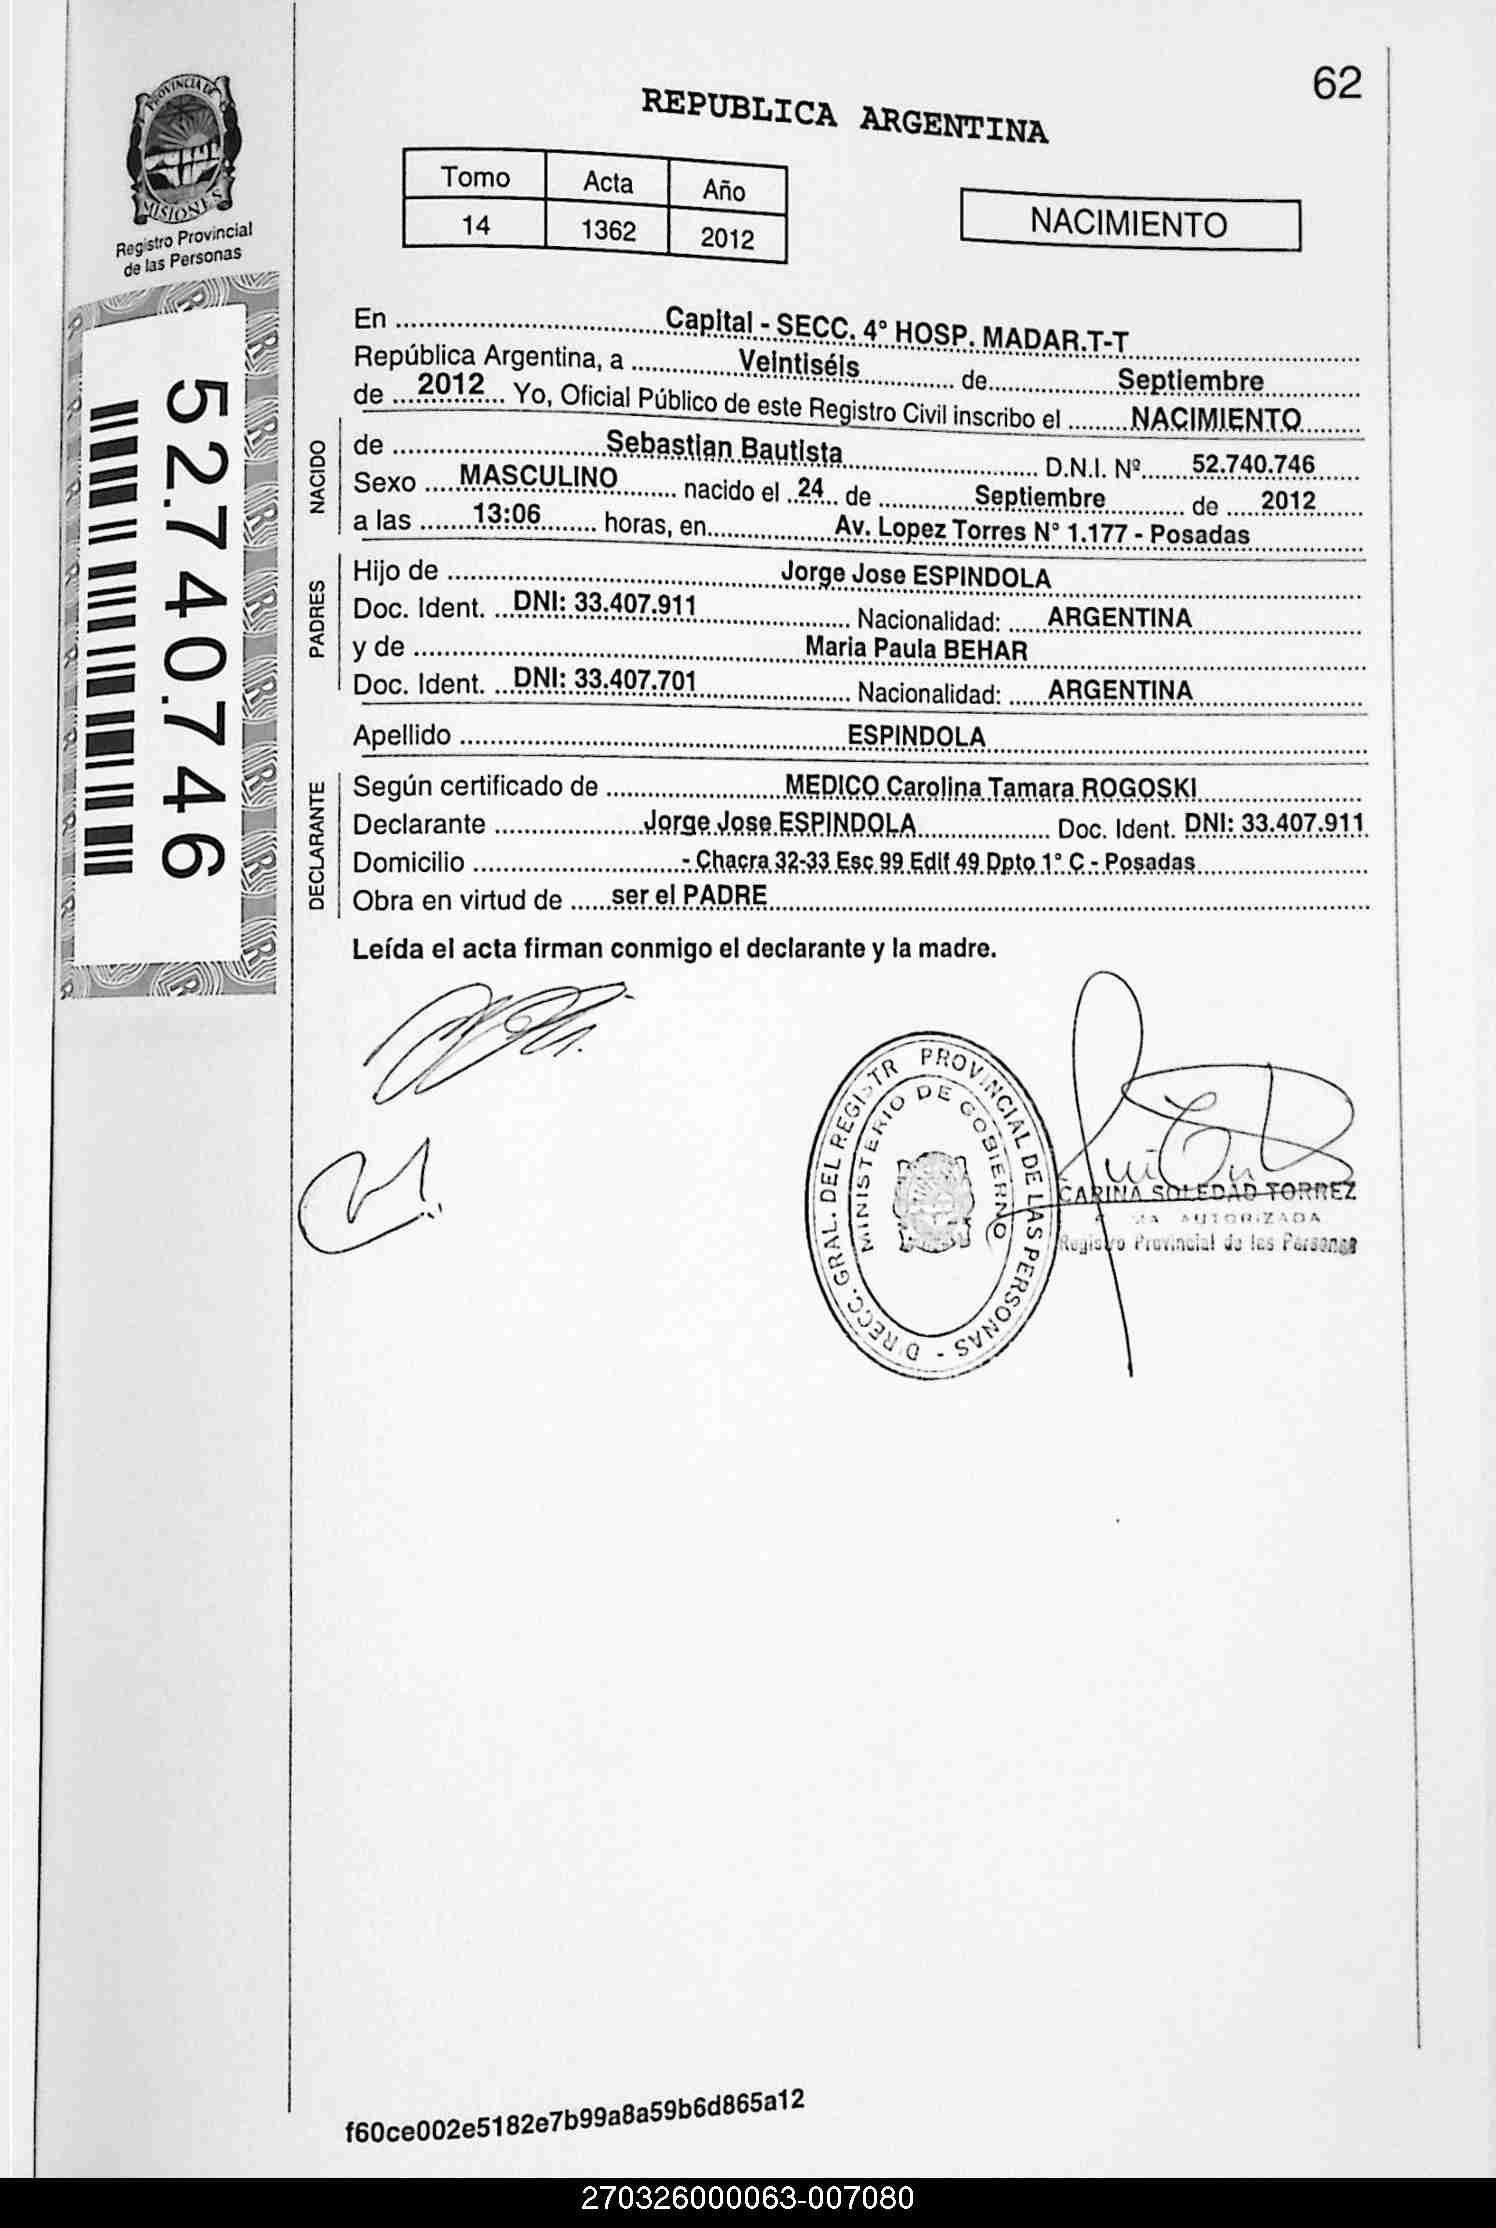 62
REPUBLICA ARGENTINA
PROVINCIA DE
MISIONES
Registro Provincial
de las Personas
Tomo Acta Año
14 1362 2012
NACIMIENTO
52.740.746
En ........ Capital - SECC. 4° HOSP. MADAR.T-T
República Argentina, a ........ Veintiséis ........ de ........ Septiembre
de ... 2012 ... Yo, Oficial Público de este Registro Civil inscribo el ........ NACIMIENTO
NACIDO
de ........ Sebastian Bautista ........ D.N.I. Nº ..... 52.740.746
Sexo .... MASCULINO ........ nacido el .. 24 .. de ........ Septiembre ........ de .... 2012
a las ...... 13:06 ...... horas, en ........ Av. Lopez Torres N° 1.177 - Posadas
PADRES
Hijo de ........ Jorge Jose ESPINDOLA
Doc. Ident. .. DNI: 33.407.911 ........ Nacionalidad: ..... ARGENTINA
y de ........ Maria Paula BEHAR
Doc. Ident. .. DNI: 33.407.701 ........ Nacionalidad: ..... ARGENTINA
Apellido ........ ESPINDOLA
DECLARANTE
Según certificado de ........ MEDICO Carolina Tamara ROGOSKI
Declarante ........ Jorge Jose ESPINDOLA ........ Doc. Ident. DNI: 33.407.911
Domicilio ........ - Chacra 32-33 Esc 99 Edif 49 Dpto 1° C - Posadas
Obra en virtud de ..... ser el PADRE
Leída el acta firman conmigo el declarante y la madre.
DIRECC. GRAL. DEL REGISTR PROVINCIAL DE LAS PERSONAS -
MINISTERIO DE GOBIERNO
CARINA SOLEDAD TORREZ
AUTORIZADA
Registro Provincial de las Personas
f60ce002e5182e7b99a8a59b6d865a12
270326000063-007080